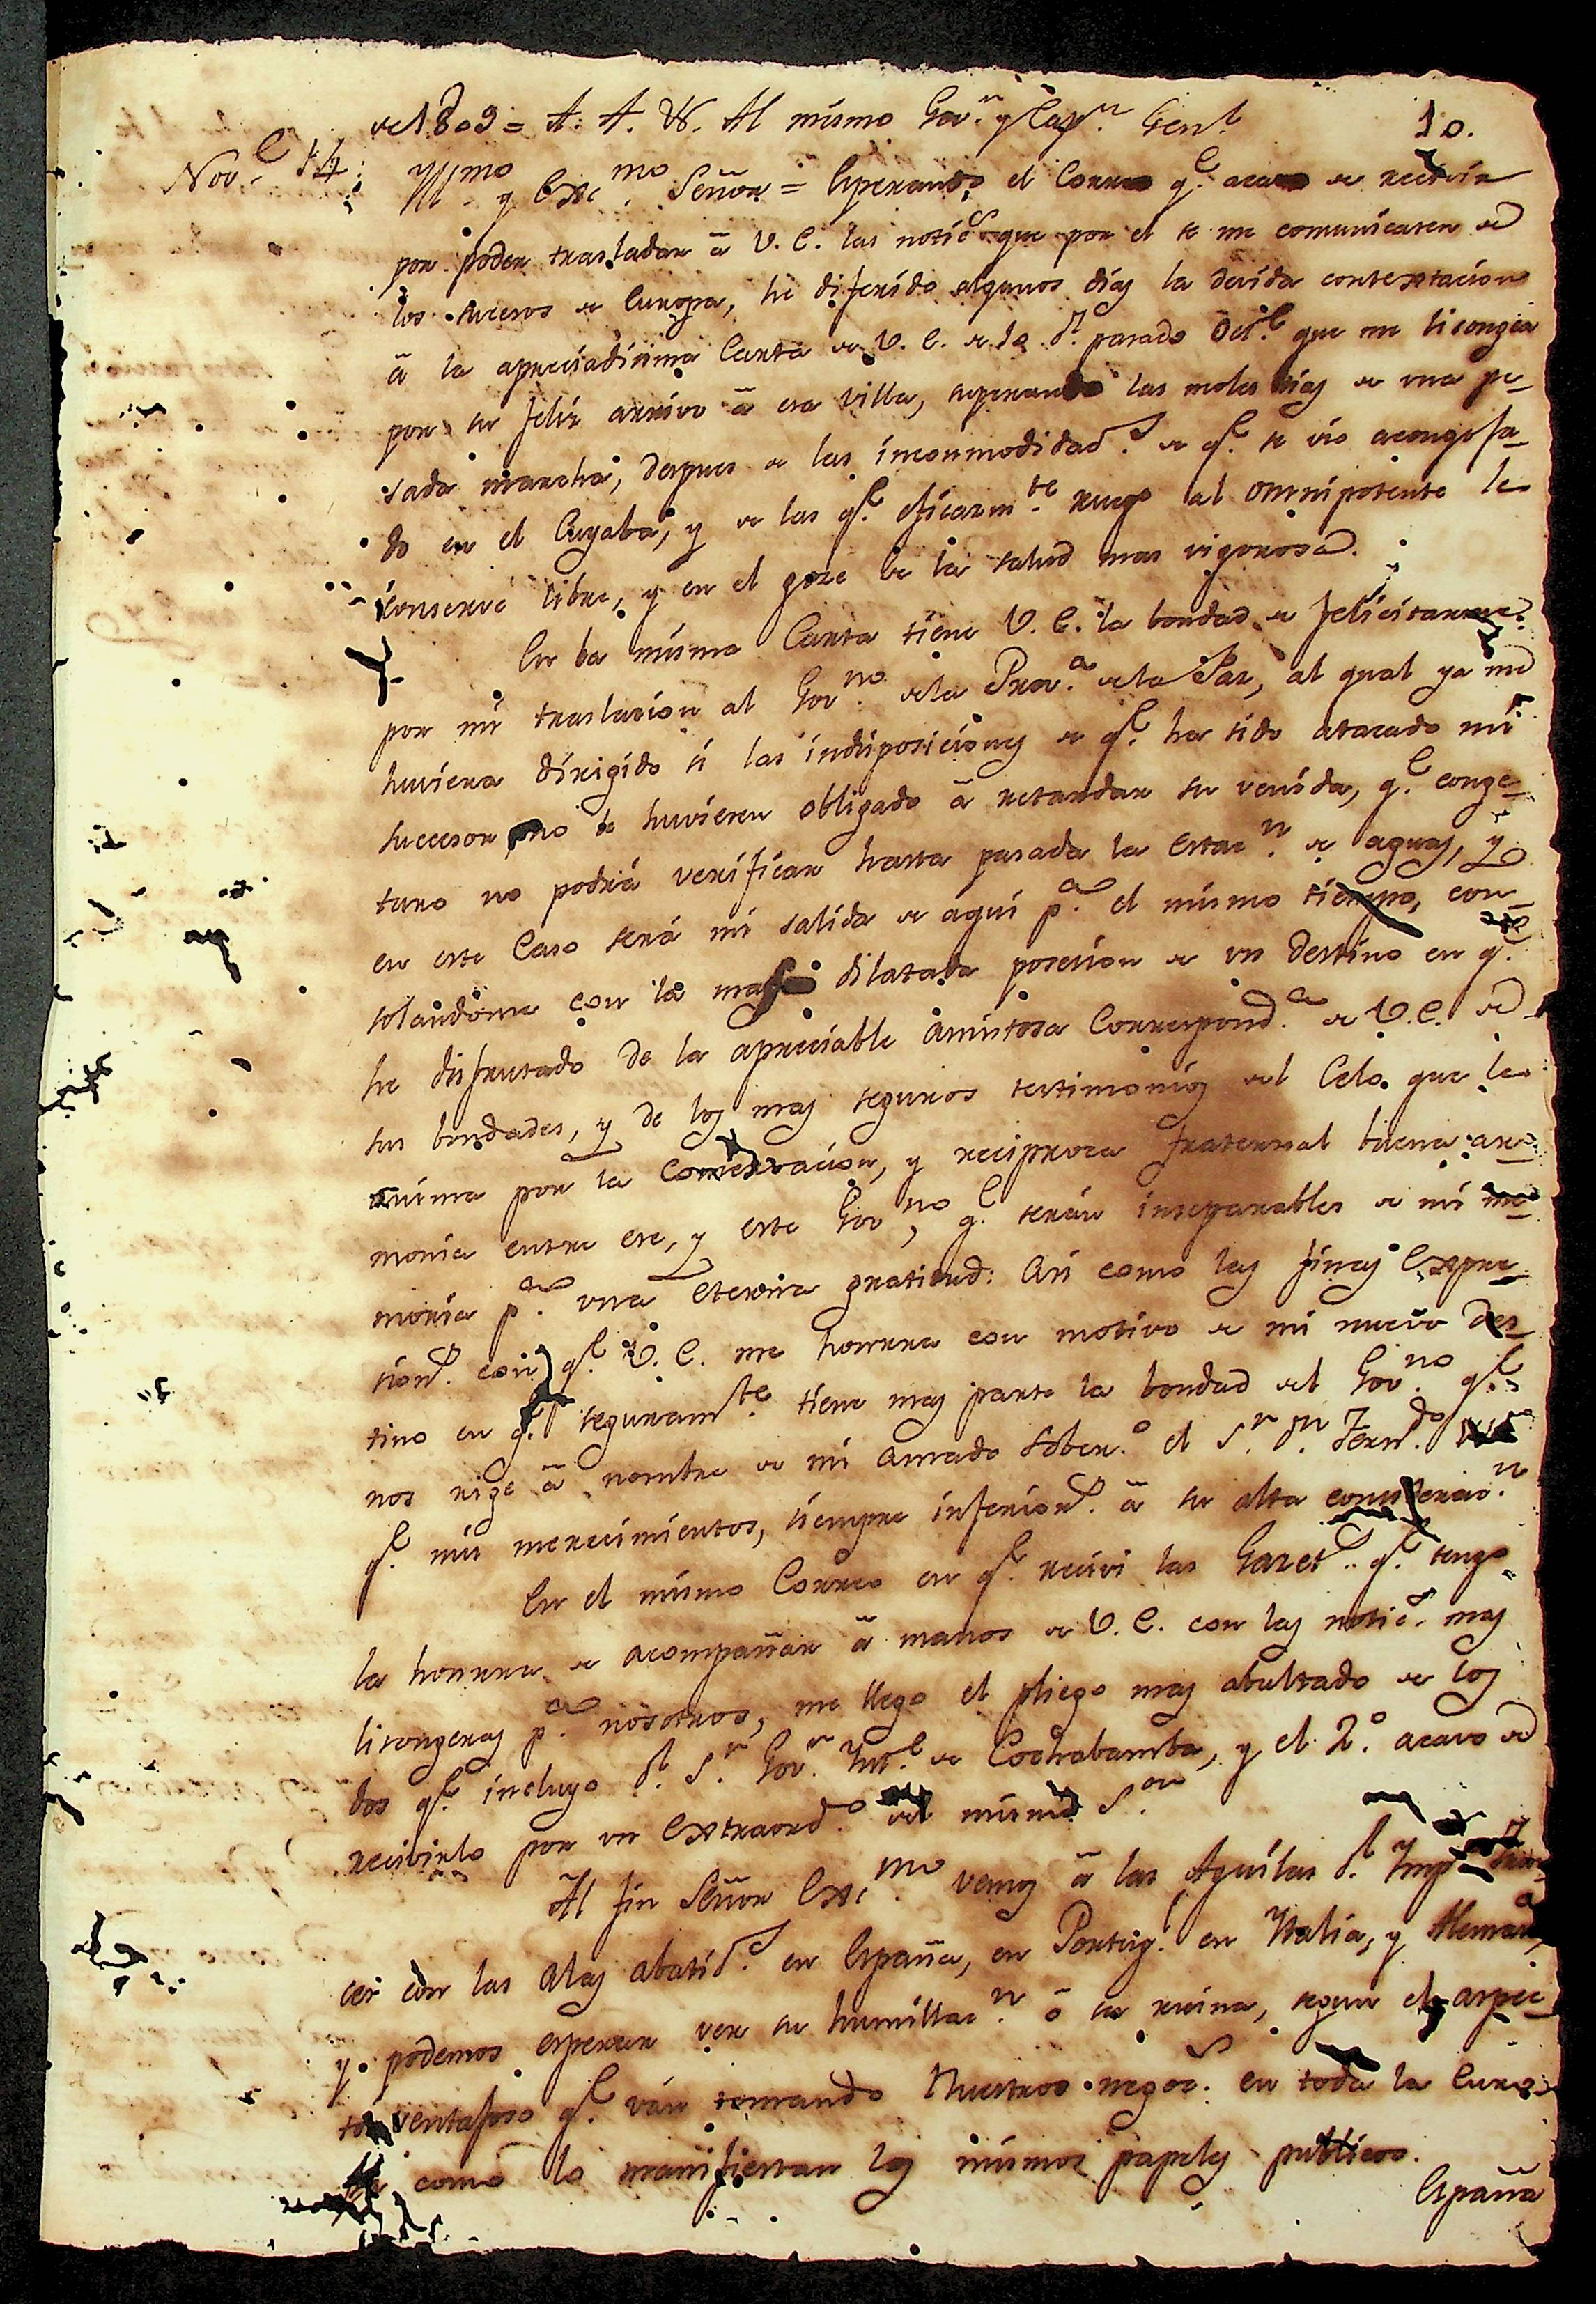 de 1809 = A. A. W. Al mismo Gov.r y Cap.n Gen.l
10.
Nov.e 14:
Yllmo y Exc.mo Señor = Esperando el Correo q.e acavo de recivir
por poder trasladar â V. E. las notic.s que por el se me comunicasen de
los sucesos de Europa, he diferido algunos dias la devida contextacion
â la apreciadisima Carta de V. E. de 10 d.l pasado Oct.e que me lisongea
por su feliz arrivo â esa villa, superando las molestias de una pe-
sada marcha, despues de las incommodidad.s de q.e se vio acongoja-
do en el Cuyabá, y de las q.e eficazm.te ruego al Omnipotente le
conserve libre, y en el goze de la salud mas vigorosa.
En la misma Carta tiene V. E. la bondad de felicitarme
por mi traslacion al Gov.no de la Prov.a de la Paz, al qual ya me
huviera dirigido si las indisposiciones de q.e ha sido atacado mi
succesor no le huvieren obligado â retardar su venida, q.e conge-
turo no podrá verificar hasta pasada la estac.n de aguas, y
en este Caso será mi salida de aqui p.a el mismo tiempo, con-
solandome con la mas dilatada posesion de un destino en q.e
he disfrutado de la apreciable amistosa Correspond.a de V. E. de
sus bondades, y de los mas seguros testimonios del Celo que le
anima por la Conservacion, y reciproca fraternal buena ar-
monia entre ese, y este Gov.no, q.e serán inseparables de mi me-
moria p.a una Eterna gratitud: Asi como las finas Expre-
sion.s con q.e V. E. me honrra con motivo de mi nuevo des-
tino en q.e seguram.te tiene mas parte la bondad del Gov.no q.e
nos rige â nombre de mi amado Sober.o el S.r D.n Fern.do
q.e mis merecimientos, siempre inferior.s â su alta considerac.n
En el mismo Correo en q.e recivi las Gazet.s q.e tengo
la honrra de acompañar â manos de V. E. con las notic.s mas
lisongeras p.a nosotros, me llego el pliego mas abultado de los
dos q.e incluyo d.l S.r Gov.r Int.e de Cochabamba, y el 2.o acavo de
recivirlo por un Extraord.o del mismo S.or
Al fin Señor Exc.mo vemos â las Aguilas d.l Imp.o Fran-
ces con las alas abatid.s en España, en Portug.l en Italia, y Aleman.a,
y podemos esperar ver su humillac.n ô su ruina, segun el aspec-
to ventajoso q.e ván tomando Nuestros negoc.s en toda la Euro-
pa como lo manifiestan los mismos papeles publicos.
España